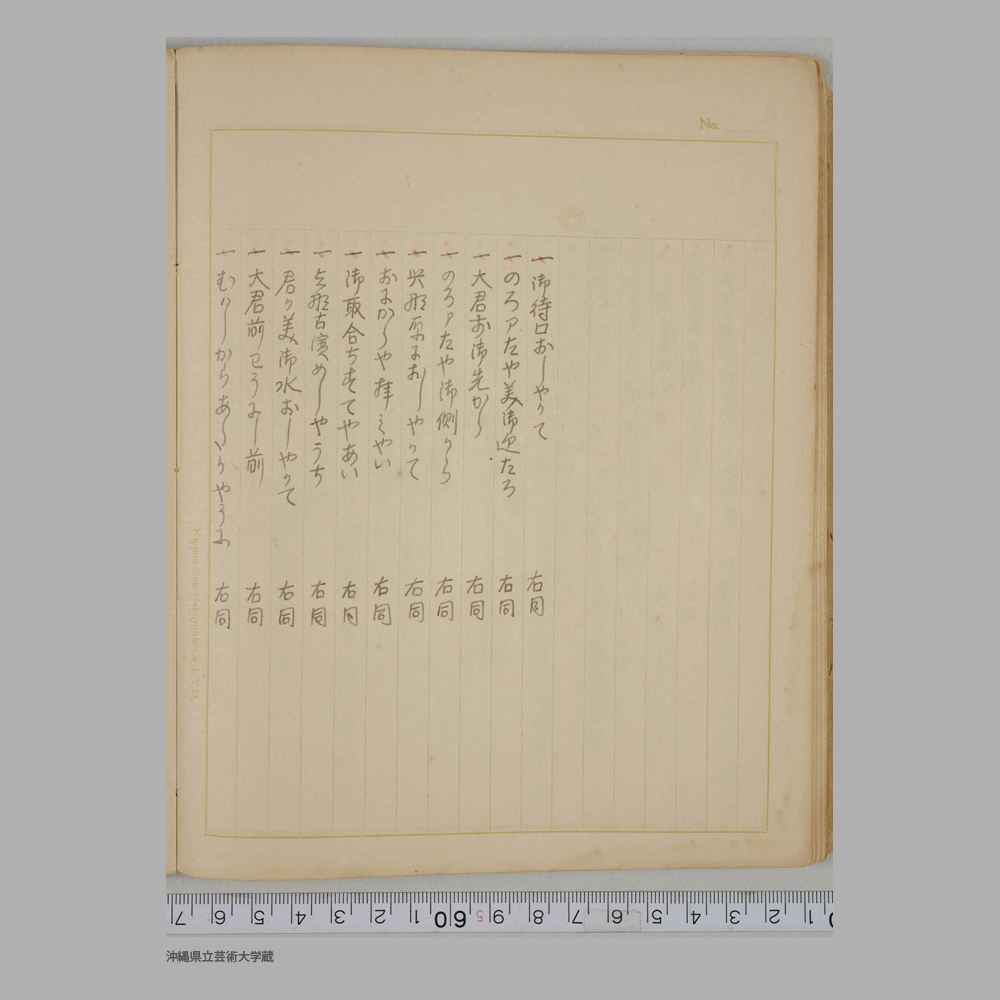 No.
一 御待口おしやりて 右同
一 のろアたや美御迎たろ 右同
一 大君お御先から 右同
一 のろアたや御側から 右同
一 與那原におしやりて 右同
一 おにから や拝みやい 右同
一 御取合ちすてやあい 右同
一 与那古濱めしやうち 右同
一 君か美御水おしやりて 右同
一 大君前 前 右同
一 むかしからあ やうに 右同
7 6 5 4 3 2 1 60 5 9 8 7 6 5 4 3 2 1
沖縄県立芸術大学蔵